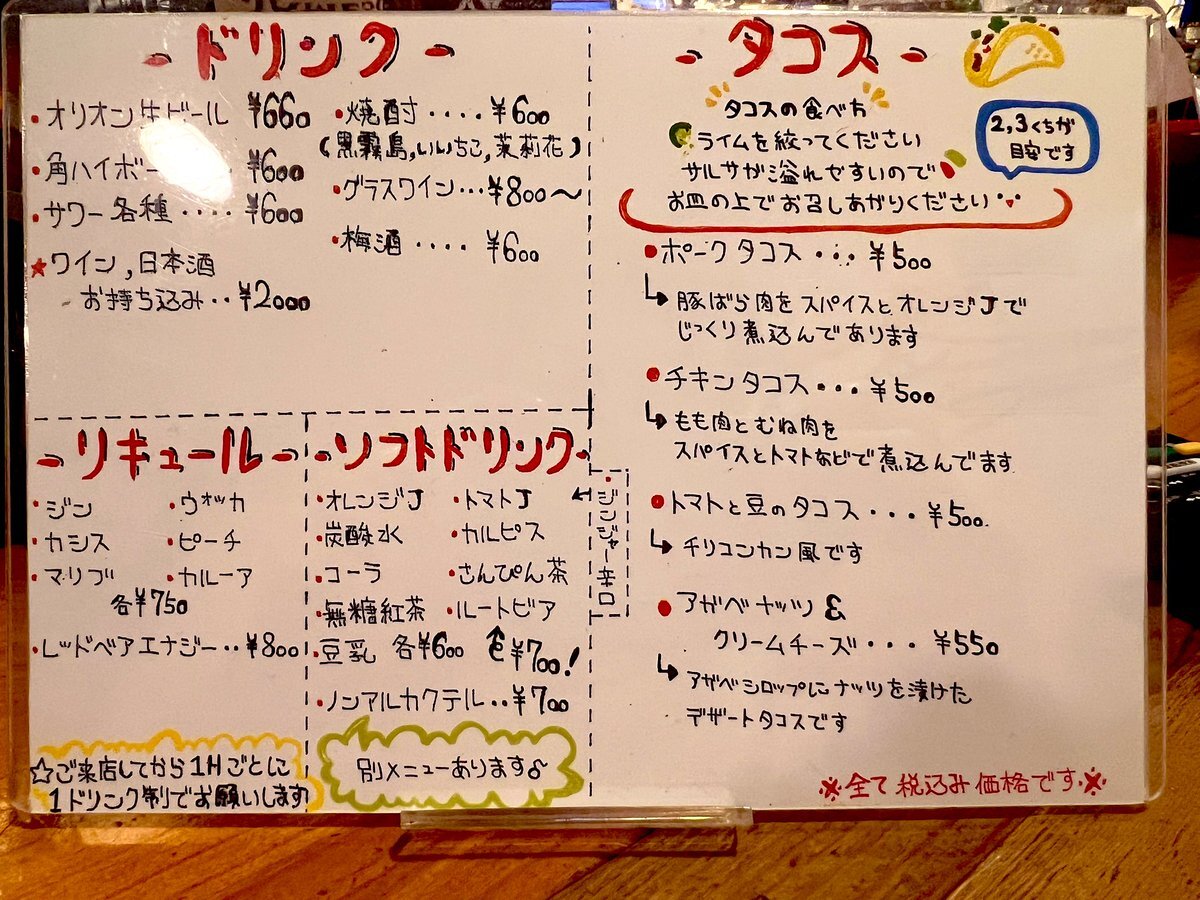 - ドリンク -
・オリオン生ビール ¥660
・角ハイボー ¥600
・サワー各種‥‥ ¥600
★ワイン,日本酒
お持ち込み‥¥2000
・焼酎‥‥ ¥600
(黒霧島,いいちこ,茉莉花)
・グラスワイン…¥800〜
・梅酒‥‥ ¥600
- リキュール -
・ジン ・ウォッカ
・カシス ・ピーチ
・マリブ ・カルーア
各¥750
・レッドベアエナジー‥¥800
☆ご来店してから1Hごとに
1ドリンク制でお願いします
- ソフトドリンク -
・オレンジJ ・トマトJ
・炭酸水 ・カルピス
・コーラ ・さんぴん茶
・無糖紅茶 ・ルートビア
・豆乳 各¥600 ¥700!
・ノンアルカクテル‥¥700
・ジンジャー辛口
別メニューあります♪
- タコス -
タコスの食べ方
ライムを絞ってください
サルサが溢れやすいので
お皿の上でお召しあがりください
2,3くちが
目安です
・ポークタコス・・・¥500
↳豚ばら肉をスパイスとオレンジJで
じっくり煮込んであります
・チキンタコス・・・¥500
↳もも肉とむね肉を
スパイスとトマトなどで煮込んでます
・トマトと豆のタコス・・・¥500
↳チリコンカン風です
・アガベナッツ&
クリームチーズ・・・¥550
↳アガベシロップにナッツを漬けた
デザートタコスです
※全て税込み価格です※